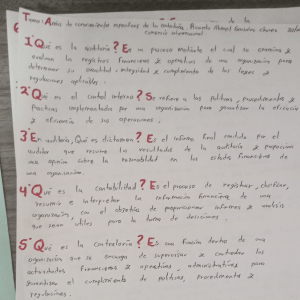 Tema: Áreas de conocimientos específicos de la contaduría, Ricardo
1° Qué es la auditoría? Es un proceso mediante el cual se examina y
evalúan los registros financieros & operativos de una organización para
determinar su exactitud, integridad & cumplimiento de las leyes &
regulaciones aplicables.
2° Qué es el control interno? Se refiere a las políticas, procedimientos &
Practicas implementadas por una organización para garantizar la eficacia
& eficiencia de sus operaciones.
3° En auditoría, Qué es dictamen? Es el informe final emitido por el
auditor que resume los resultados de la auditoría & proporciona
una opinión sobre la razonabilidad en los estados financieros de
una organización.
4° Qué es la contabilidad? Es el proceso de registrar, clasificar,
resumir e interpretar la información financiera de una
organización, con el objetivo de proporcionar informes & análisis
que sean útiles para la toma de decisiones.
5° Qué es la contraloría? Es una función dentro de una
organización que se encarga de supervisar & controlar las
actividades financieras & operativas, administrativas para
garantizar el cumplimiento de políticas, procedimientos &
regulaciones.